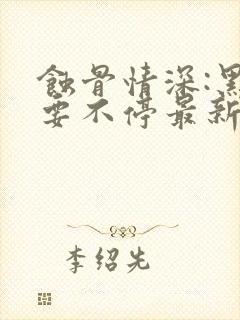 蚀骨情深:黑
要不停最新
李绍先